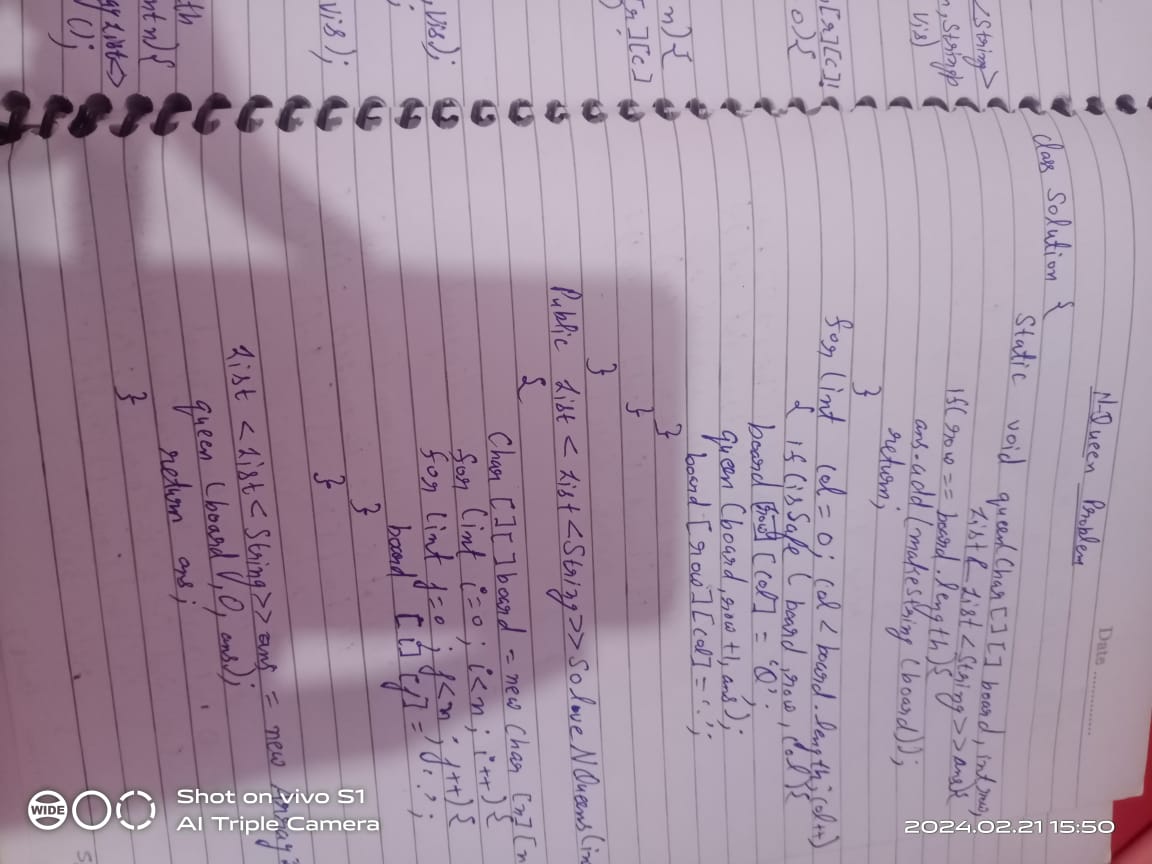 Date
N-Queen Problem
class Solution {
Static void queen(char[][] board, int row,
List<List<String>>ans){
if(row == board.length){
ans.add(makeString(board));
return;
}
for(int col = 0; col < board.length; col++)
{ if(isSafe(board, row, col){
board[row][col] = 'Q';
queen(board, row+1, ans);
board[row][col] = '.';
}
}
}
Public List<List<String>> SoloveNQueens(in
{
Char[][] board = new Char[n][n
for(int i=0; i<n; i++){
for(int j=0; j<n; j++){
board[i][j] = '.';
}
}
List<List<String>>ans = new Array
queen(board, 0, ans);
return ans;
}
<String>
Vis)
[r][c]!
0){
n){
[r][c]
,Vis);
Vis);
int n){
();
Shot on vivo S1
AI Triple Camera
WIDE
2024.02.21 15:50